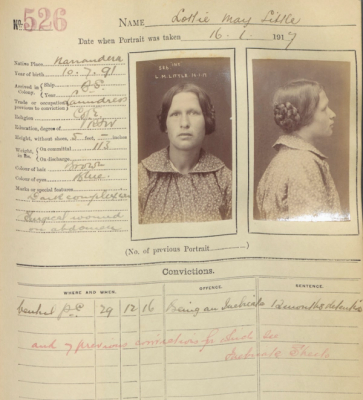 No. 526
NAME Lottie May Little
Date when Portrait was taken 16. 1. 1917
Native Place Narrandera
Year of birth 10. 7. 91
Arrived in Colony. Ship
Year
Trade or occupation previous to conviction Laundress
Religion C of E
Education, degree of R & W
Height, without shoes 5 feet, inches
Weight, in lbs. On committal 113
On discharge
Colour of hair Brown
Colour of eyes Blue
Marks or special features
Dark complexion
Surgical wound
on abdomen
L.M. LITTLE
(No. of previous Portrait )
Convictions.
WHERE AND WHEN. OFFENCE. SENTENCE.
Central 29 12 16 Being an Inebriate 12 months detention
and 7 previous convictions
Inebriate